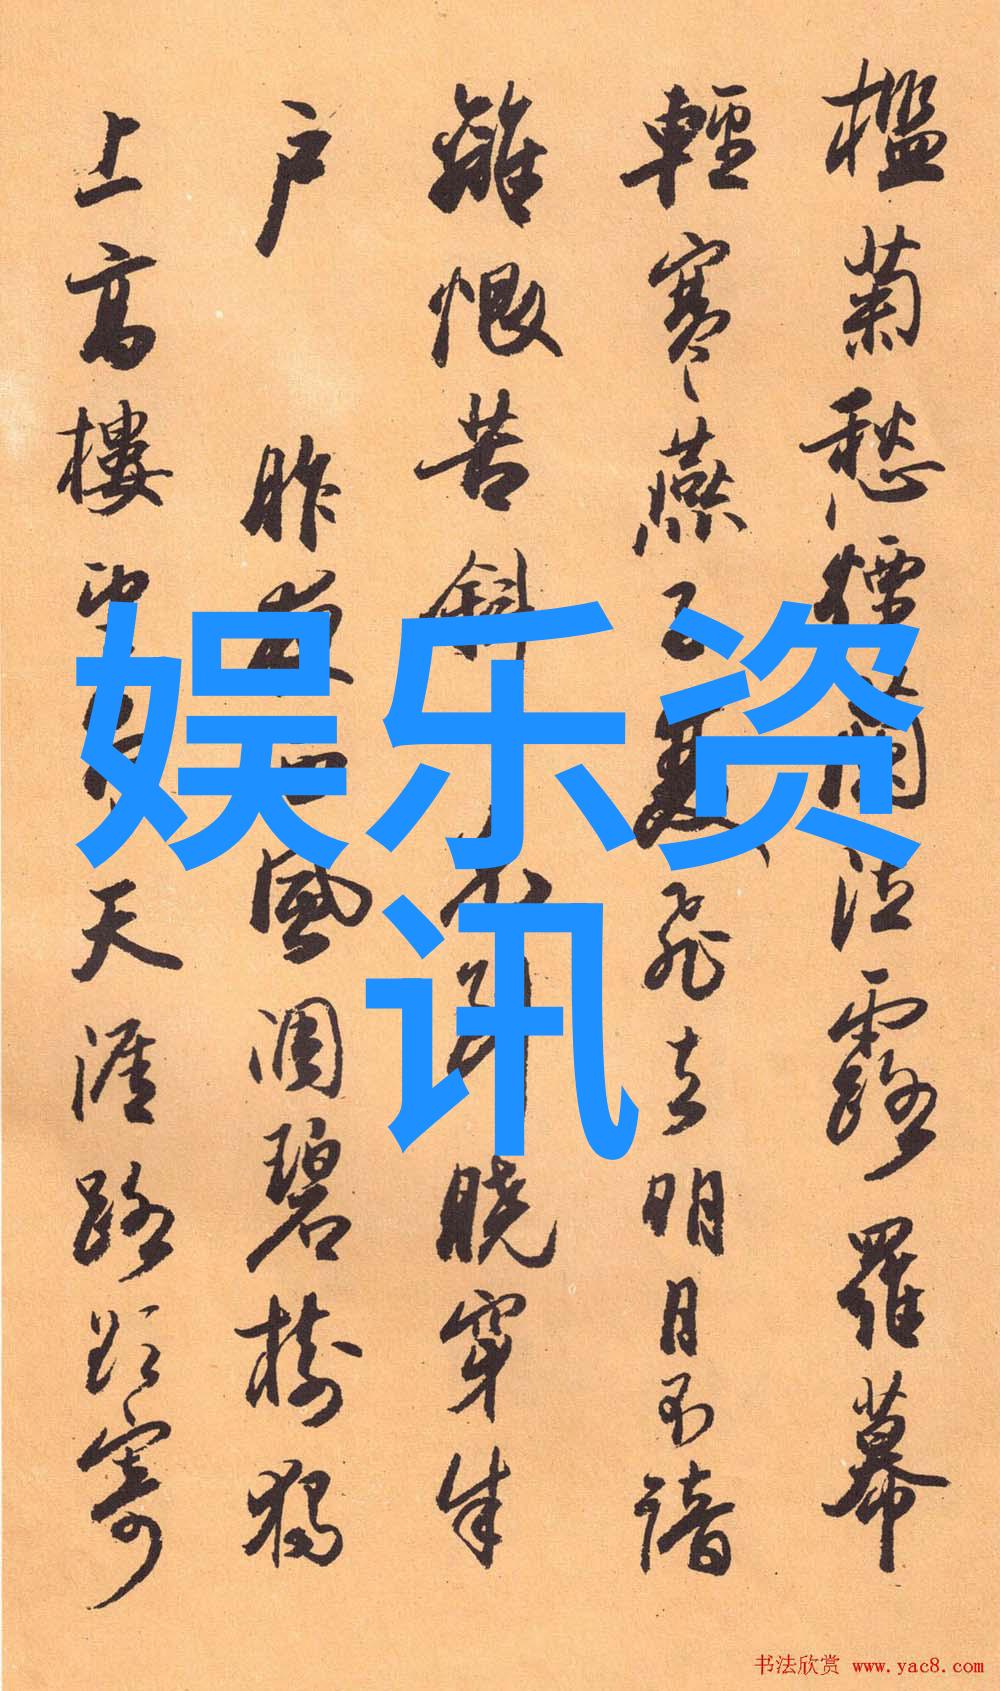 檻菊愁煙蘭泣露羅幕
輕寒燕子雙飛去明月不諳
離恨苦斜曉穿朱
户 昨夜風凋碧樹獨
上高樓望天涯路欲寄
娱乐资
讯
书法欣赏 www.yac8.com